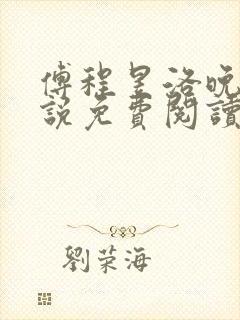 傅程呈洛晚
說免費閱讀
劉荣海